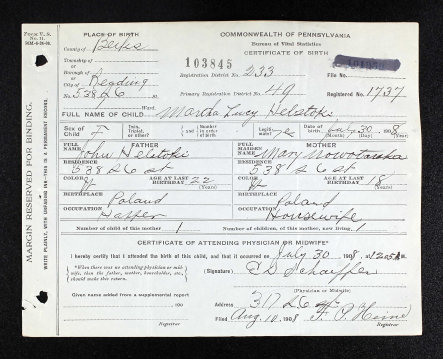 Form V. S. No. 11.
PLACE OF BIRTH
COMMONWEALTH OF PENNSYLVANIA
County of Berks
Bureau of Vital Statistics
Township of
103845
CERTIFICATE OF BIRTH
Borough of
Registration District No. 233
File No.
City of Reading
538 N 6 St
Ward.
Primary Registration District No. 49
Registered No. 1737
FULL NAME OF CHILD Martha Lucy Helstoki
Sex of Child F
Twin, Triplet, or other?
Number in order of birth
Legitimate? ye
Date of birth July 30 1908
FATHER
MOTHER
FULL NAME John Helstoki
FULL MAIDEN NAME Mary Nowotarska
RESIDENCE 538 N 6 St
RESIDENCE 538 N 6 St
COLOR W
AGE AT LAST BIRTHDAY 22 (Years)
COLOR W
AGE AT LAST BIRTHDAY 18 (Years)
BIRTHPLACE Poland
BIRTHPLACE Poland
OCCUPATION
OCCUPATION Housewife
Number of child of this mother 1
Number of children, of this mother, now living 1
CERTIFICATE OF ATTENDING PHYSICIAN OR MIDWIFE*
I hereby certify that I attended the birth of this child, and that it occurred on July 30 1908, at 1205 A M.
*When there was no attending physician or midwife, then the father, mother, householder, etc., should make this return.
(Signature) E D Schaeffer
(Physician or Midwife)
Given name added from a supplemental report 190
Address 317 N 6 St
Registrar
Filed Aug 10 1908 F. P. Heine
Registrar
MARGIN RESERVED FOR BINDING.
WRITE PLAINLY, WITH UNFADING INK—THIS IS A PERMANENT RECORD.